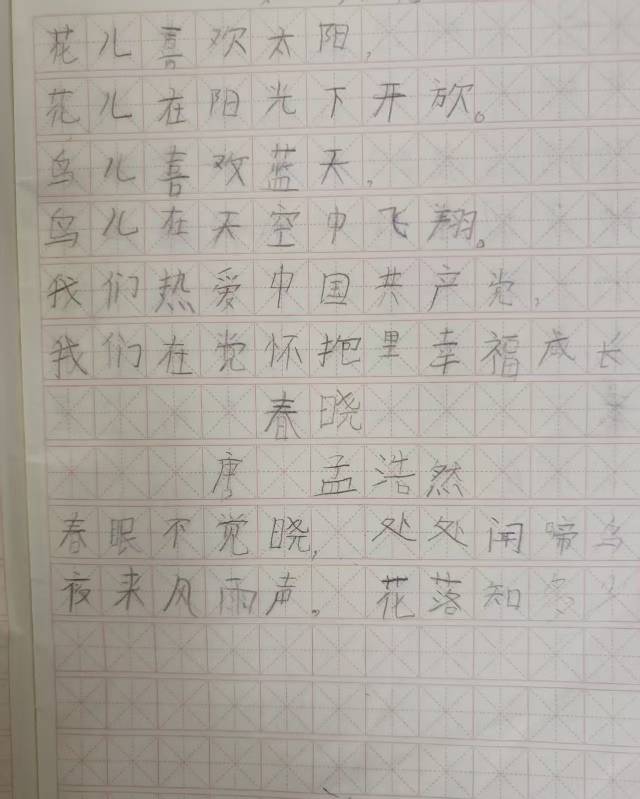 花儿喜欢太阳,
花儿在阳光下开放。
鸟儿喜欢蓝天,
鸟儿在天空中飞翔。
我们热爱中国共产党,
我们在党怀抱里幸福成长
春晓
唐 孟浩然
春眠不觉晓, 处处闻啼鸟
夜来风雨声。 花落知多少